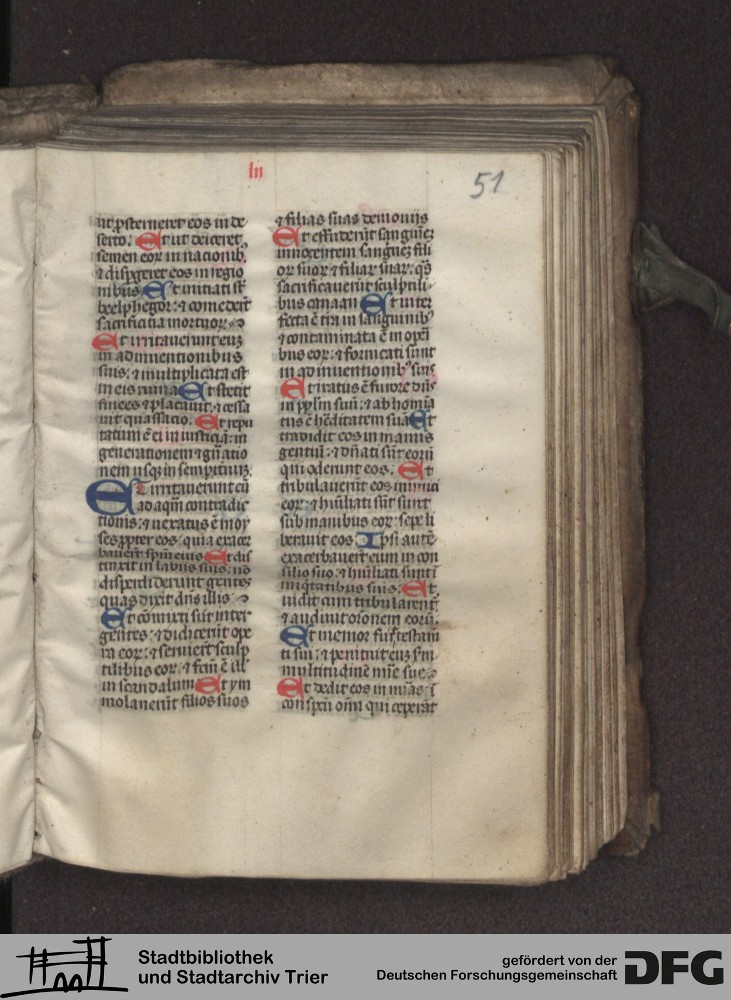 lii
51
ut ꝓsterneret eos in de
serto. Et ut deiceret
semen eoꝝ in nacionibꝫ
⁊ dispgeret eos in regio
nibus Et initiati st̄
beelphegor: ⁊ comederūt
sacrificia mortuoꝝ
Et irritauerunt euꝫ
in adinuentionibus
suis: ⁊ multiplicata est
in eis ruina Et stetit
finees ⁊ placauit: ⁊ cessa
uit quassacio. Et repu
tatum ē ei in iusticiā: in
generationem ⁊ gn̄atio
nem usqꝫ in sempiternuꝫ.
Et irritauerunt eū
ad aqm̄ contradic
tionis: ⁊ uexatus ē moy
ses ꝓpter eos: quia exacer
bauerūt spm̄ eius Et dis
tinxit in labiis suis: nō
disperdiderunt gentes
quas dixit dn̄s illis
Et cōmixti sūt inter
gentes: ⁊ didicerūt ope
ra eoꝝ: ⁊ seruierūt sculp
tilibus eoꝝ: ⁊ fcm̄ ē ill'
in scandalum Et ym
molauerūt filios suos
⁊ filias suas demoniis
Et effuderūt sanguinē
innocentem sanguinē fili
oꝝ suoꝝ ⁊ filiaꝝ suaꝝ: qs̄
sacrificauerūt sculptili
bus canaan Et inter
fecta ē tr̄a in sanguinibꝫ
⁊ contaminata ē in oꝑi
bus eoꝝ: ⁊ fornicati sunt
in adinuentionibꝫ suis
Et iratus ē furore dn̄s
in pplm̄ suū: ⁊ abhomia
tus ē hēditatem suā Et
tradidit eos in manus
gentiū: ⁊ dn̄ati sūt eorū
qui oderunt eos. Et
tribulauerūt eos inimici
eoꝝ: ⁊ hūiliati sūt sunt
sub manibus eoꝝ: sepe li
berauit eos. Ipsi autē
exacerbauerūt eum in con
silio suo: ⁊ hūiliati sunt ī
iniqtatibus suis: Et
uidit cum tribularent̄
⁊ audiuit orōnem eorū.
Et memor fuit testam
ti sui: ⁊ penituit euꝫ scm̄
multitudinē mīe sue
Et dedit eos in mīas: ī
conspectu oīm qui ceperāt
Stadtbibliothek
und Stadtarchiv Trier
gefördert von der
Deutschen Forschungsgemeinschaft
DFG